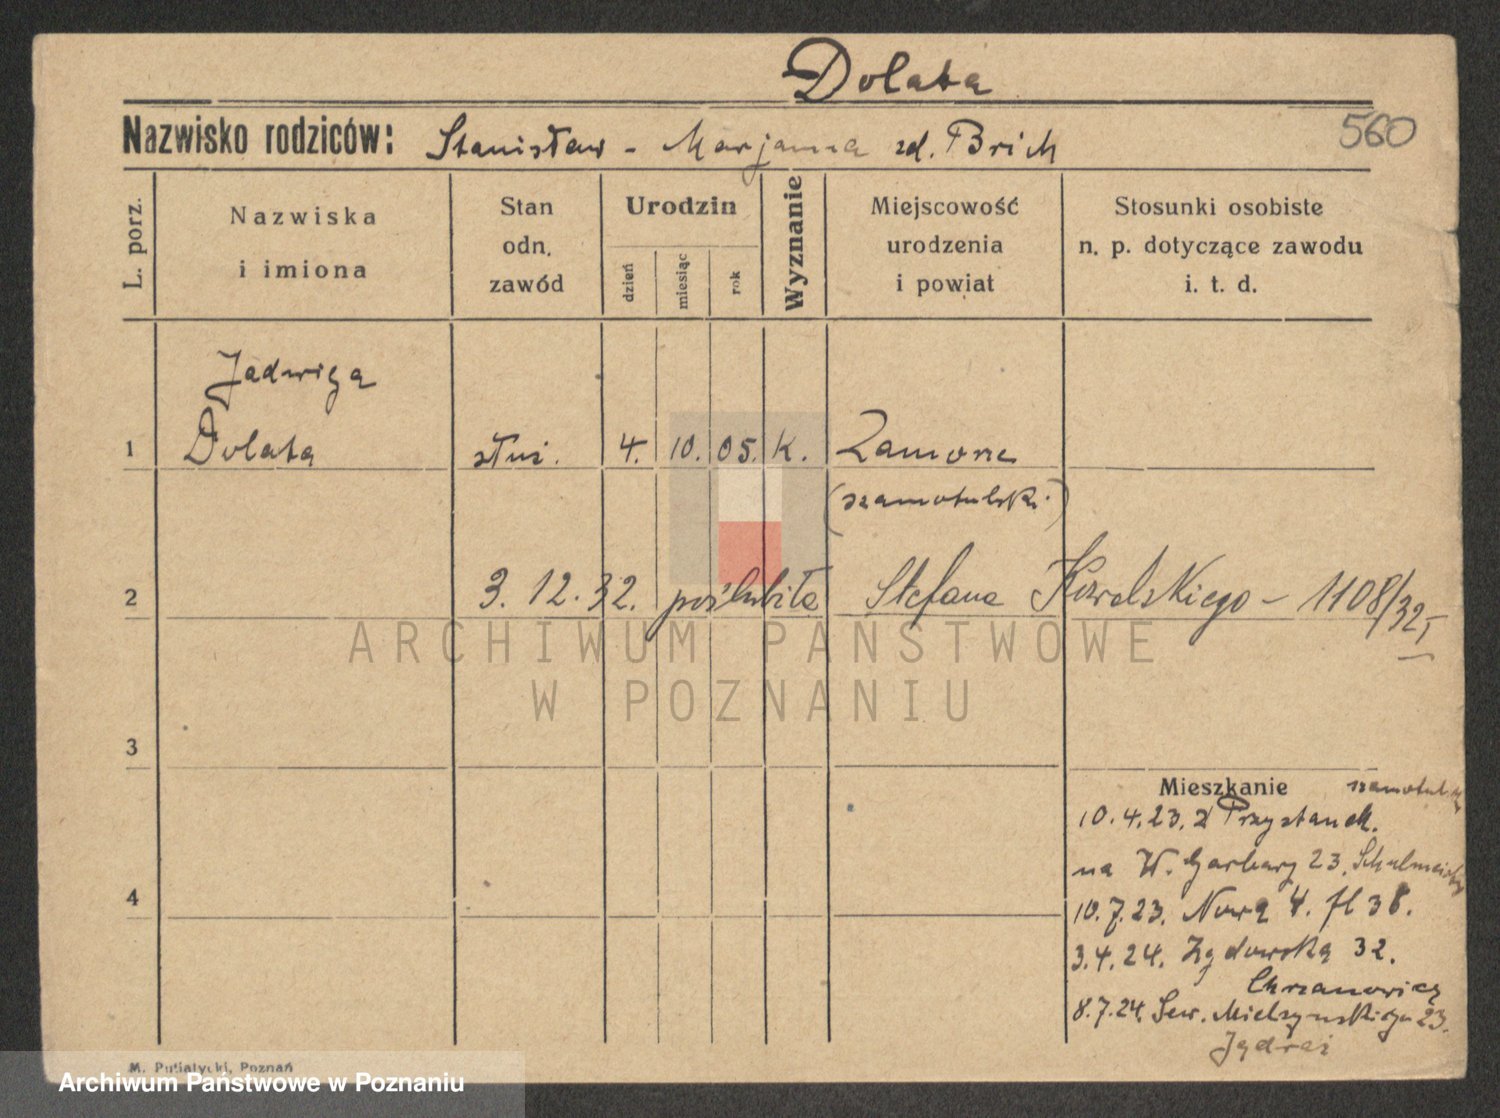 Dolata
560
Nazwisko rodziców: Stanisław - Marjanna zd. Brich
L. porz.
Nazwiska
i imiona
Stan
odn.
zawód
Urodzin
dzień
miesiąc
rok
Wyznanie
Miejscowość
urodzenia
i powiat
Stosunki osobiste
n. p. dotyczące zawodu
i. t. d.
Jadwiga
1 Dolata służ. 4. 10. 05. K. Zamorze
(szamotulski)
2 3. 12. 32. poślubiła Stefana Kowalskiego - 1108/32 I
ARCHIWUM PAŃSTWOWE
W POZNANIU
3
Mieszkanie
10.4.23. z Przystanek.
4
na W. Garbary 23.
10.7.23. Nowa 4. fl 38.
3.4.24. Żydowska 32.
Chrzanowicz
8.7.24. Sew. Mielżyńskiego 23.
M. Putiatycki, Poznań
Archiwum Państwowe w Poznaniu